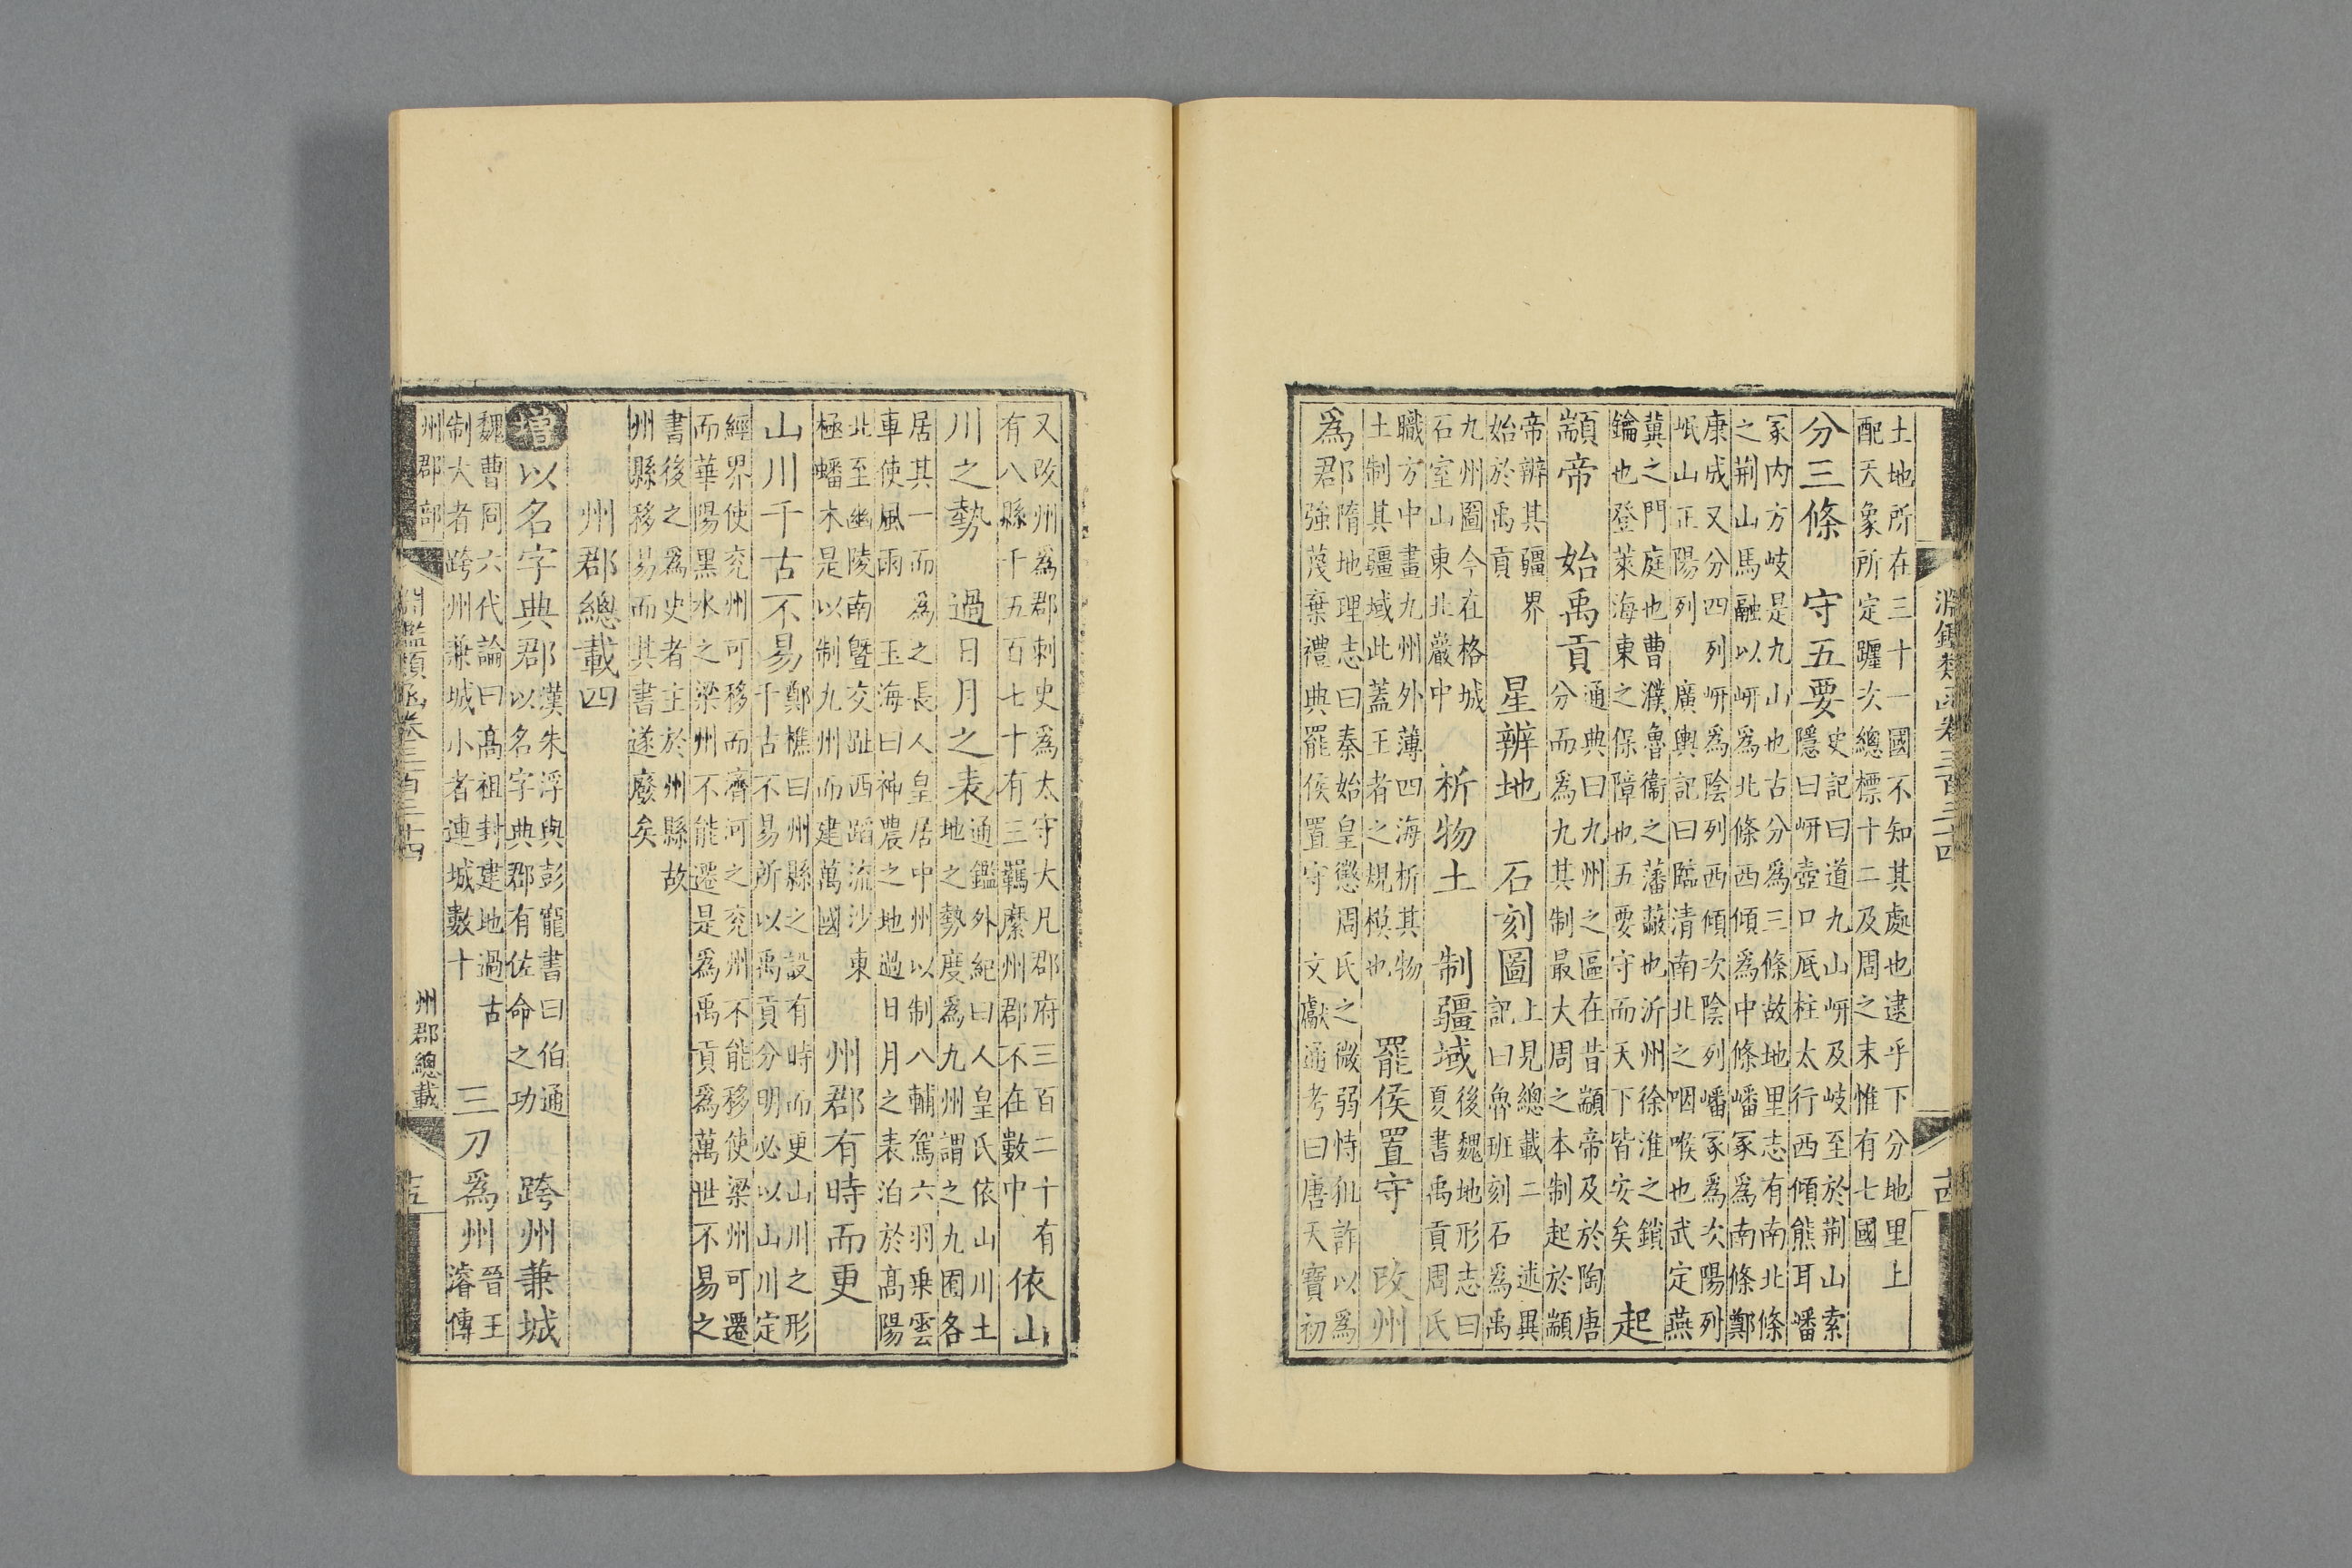 淵鑑類函卷三百三十四
土地所在三十一國不知其處也逮乎下分地里上
配天象所定躔次總標十二及周之末惟有七國
分三條　守五要
史記曰道九山岍及岐至於荆山索
隱曰岍壺口厎柱太行西傾熊耳嶓
冢内方岐是九山也古分爲三條故地里志有南北條
之荆山馬融以岍爲北條西傾爲中條嶓冢爲南條鄭
康成又分四列岍爲陰列西傾次陰列嶓冢爲次陽列
岷山正陽列　廣輿記曰臨清南北之咽喉也武定燕
冀之門庭也曹濮魯衞之藩蔽也沂州徐淮之鎖
鑰也登萊海東之保障也五要守而天下皆安矣
起
顓帝　始禹貢
通典曰九州之區在昔顓帝及於陶唐
分而爲九其制最大周之本制起於顓
帝辨其疆界
始於禹貢
星辨地　石刻圖
上見總載二　述異
記曰魯班刻石爲禹
九州圖今在格城
石室山東北巖中
析物土　制疆域
後魏地形志曰
夏書禹貢周氏
職方中畫九州外薄四海析其物
土制其疆域此蓋王者之規模也
罷侯置守　改州
爲郡
隋地理志曰秦始皇懲周氏之微弱恃狙詐以爲
強蔑棄禮典罷侯置守　文獻通考曰唐天寶初
又改州爲郡刺史爲太守大凡郡府三百二十有
有八縣千五百七十有三羈縻州郡不在數中
依山
川之勢　過日月之表
通鑑外紀曰人皇氏依山川土
地之勢度爲九州謂之九囿各
居其一而爲之長人皇居中州以制八輔駕六羽乗雲
車使風雨　玉海曰神農之地過日月之表泊於髙陽
北至幽陵南曁交趾西蹈流沙東
極蟠木是以制九州而建萬國
州郡有時而更
山川千古不易
鄭樵曰州縣之設有時而更山川之形
千古不易所以禹貢分明必以山川定
經界使兖州可移而濟河之兖州不能移使梁州可遷
而華陽黑水之梁州不能遷是爲禹貢爲萬世不易之
書後之爲史者主於州縣故
州縣移易而其書遂廢矣
州郡總載四
增以名字典郡
漢朱浮與彭寵書曰伯通
以名字典郡有佐命之功
跨州兼城
魏曹冏六代論曰髙祖封建地過古
制大者跨州兼城小者連城數十
三刀爲州
晉王
濬傳
州郡部
淵鑑類函卷三百三十四
州郡總載